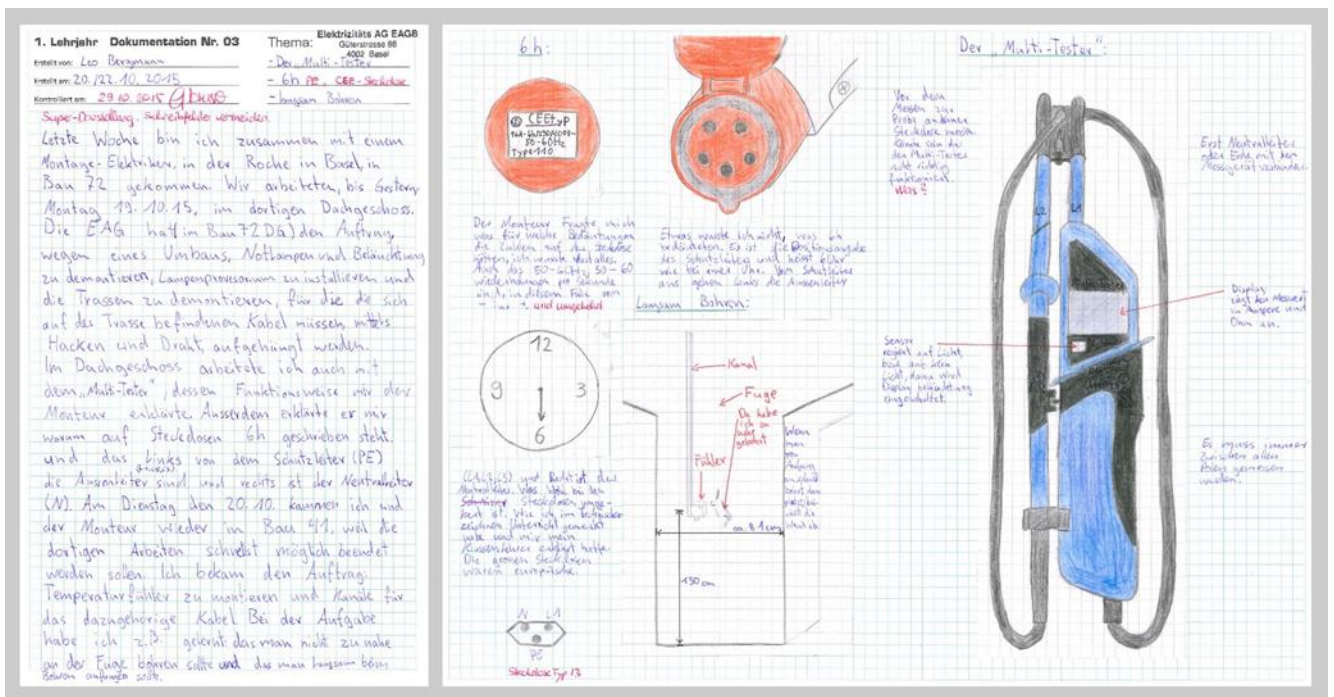 1. Lehrjahr Dokumentation Nr. 03
Thema:
Elektrizitäts AG EAGB
Güterstrasse 86
4002 Basel
Erstellt von: Leo Bergmann
- Der „Multi-Tester
Erstellt am: 20./22.10.2015
- 6h PE, CEE-Steckdose
Kontrolliert am: 29.10.2015
- langsam Bohren
Super-Darstellung. Schreibfehler vermeiden.
Letzte Woche bin ich zusammen mit einem
Montage-Elektriker, in der Roche in Basel, in
Bau 72 gekommen. Wir arbeiteten, bis Gestern
Montag 19.10.15, im dortigen Dachgeschoss.
Die EAG hat im Bau 72 DG) den Auftrag,
wegen eines Umbaus, Notlampen und Beläuchtung
zu demontieren, Lampenprovesorium zu installieren und
die Trassen zu demontieren, für die die sich
auf der Trasse befindenen Kabel müssen mittels
Hacken und Draht, aufgehängt werden.
Im Dachgeschoss arbeitete ich auch mit
dem „Multi-Tester", dessen Funktionsweise mir der
Monteur erklärte. Ausserdem erklärte er mir
warum auf Steckdosen 6h geschrieben steht.
und das links von dem Schutzleiter (PE)
die Aussenleiter sind und rechts ist der Neutralleiter
(N). Am Dienstag den 20.10. kammen ich und
der Monteur wieder in Bau 41, weil die
dortigen Arbeiten schnelst möglich beendet
werden sollen. Ich bekam den Auftrag:
Temperaturfühler zu montieren und Kanäle für
das dazugehörige Kabel. Bei der Aufgabe
habe ich z.B. gelernt das man nicht zu nahe
an der Fuge bohren sollte und das man langsam beim
Bohren anfangen sollte.
6h:
CEEtyp
50-60Hz
Type 110
Der Monteur Fragte mich
was für welche Bedäutungen
die Zahlen auf der Steckdose
hätten, ich wusste fast alles.
Auch das 50-60Hz, 50-60
wiederholungen pro Sekunde
sind, in diesem Fall von
- ins +. und umgekehrt
Etwas wusste ich nicht, was 6h
bedäuteten. Es ist die Positionsangabe
des Schutzleiters und heisst 6 Uhr
wie bei einer Uhr. Vom Schutzleiter
aus gehen Links die Aussenleiter
12
9
3
6
(L1, L2, L3) und Rechts ist der
Neutralleiter. Was
Steckdosen umge-
kert ist. Wie ich im
zeichnen Unterricht gemerkt
habe und mir mein
Klassenlehrer erklärt hatte.
Die grossen Steckdosen
waren europäische.
N L1
PE
Steckdose Typ 13
Langsam Bohren:
Kanal
Fuge
Da habe
ich zu
nahe
gebohrt
Fühler
Wenn
man
von
Anfang
bohrt dann
ca. 8.1cm
150 cm
Der „Multi-Tester":
Vor dem
Messen zur
Probe an einer
Steckdose messen.
Könnte sein das
der Multi-Tester
nicht richtig
funktioniert.
Was?
L2
L1
Erst Neutralleiter
oder Erde mit dem
Messgerät verbinden.
Display
zeigt den Messwert
in Ampere und
Ohm an.
Sensor
reagiert auf Licht,
Licht, dann wird
Display beläuchtung
eingeschaltet.
Es muss immer
zwischen allen
Polen gemessen
werden.